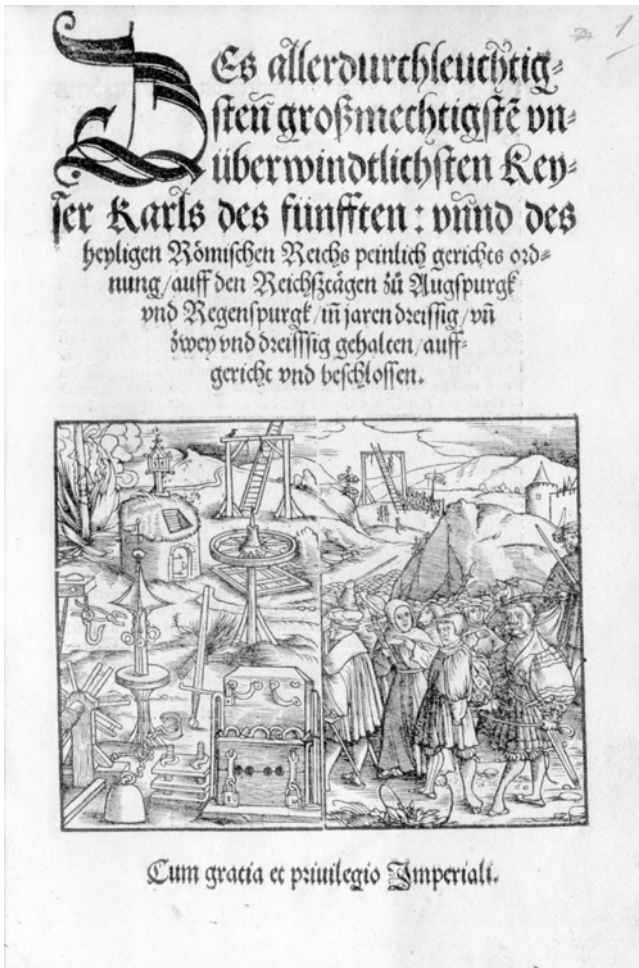 DEs allerdurchleuchtig-
sten großmechtigstē vn-
überwindtlichsten Key-
ser Karls des fünfften: vnnd des
heyligen Römischen Reichs peinlich gerichts ord-
nung/auff den Reichsztägen zů Augspurgk
vnd Regenspurgk/in jaren dreissig/vñ
zwey vnd dreissig gehalten/auff-
gericht vnd beschlossen.
Cum gracia et priuilegio Imperiali.
1